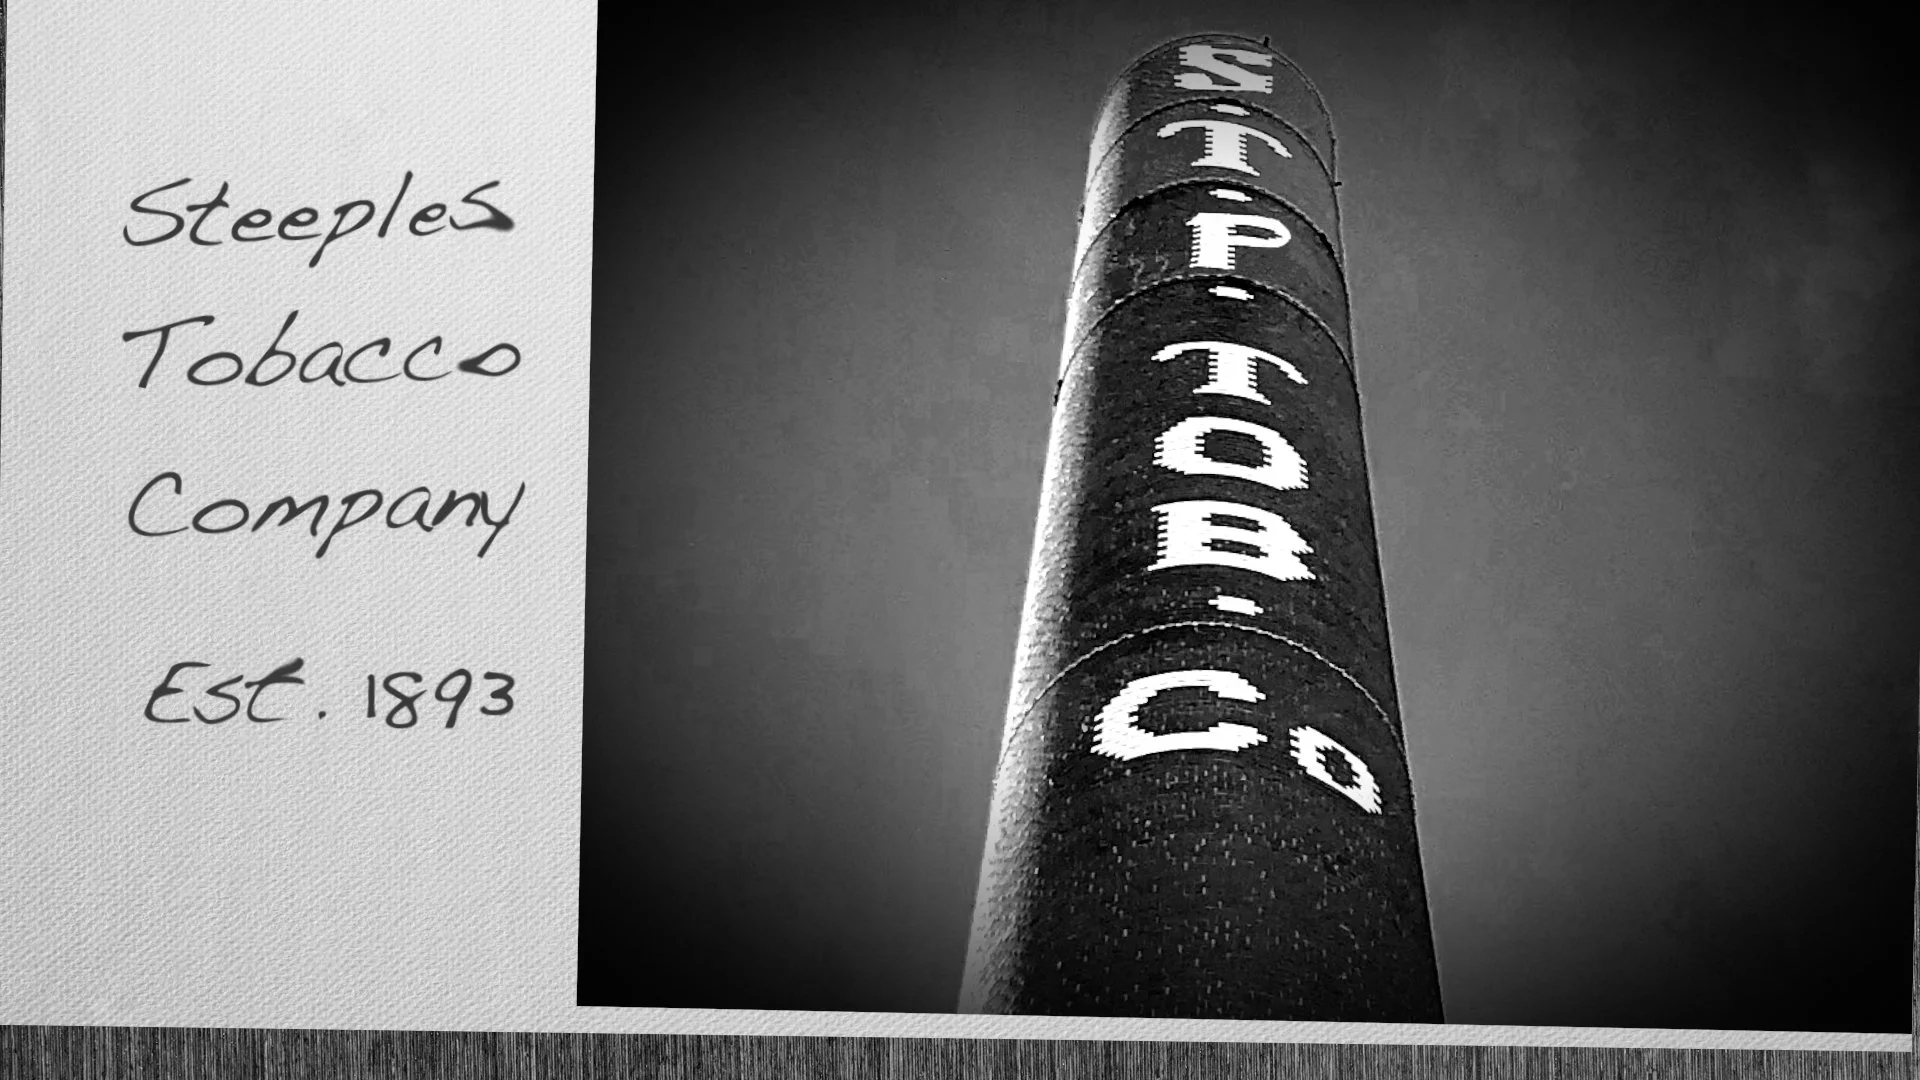 Steeples
Tobacco
Company
Est. 1893
S.
T.
P.
TOB.
Co